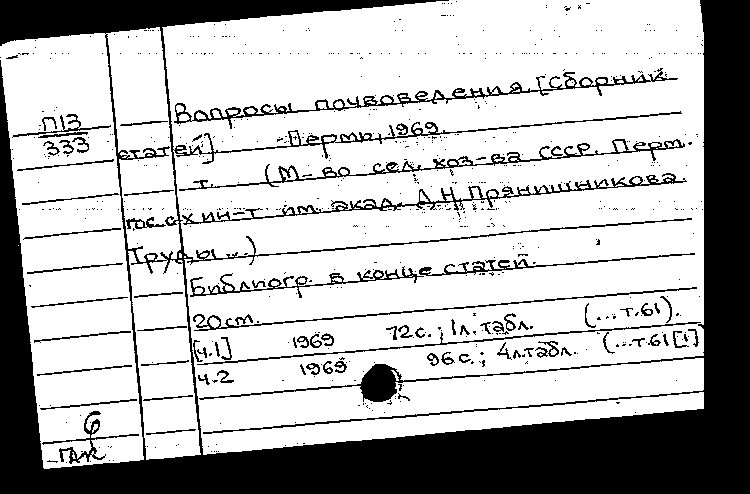 П13
333
Вопросы почвоведения. [Сборник
статей]. Пермь, 1969.
т. (М-во сел. хоз-ва СССР. Перм.
гос. с х ин-т им. акад. Д. Н. Прянишникова.
Труды ...)
Библиогр. в конце статей.
20 см.
[ч.1] 1969 72 с.; 1 л. табл. (...т.61).
ч.2 1969 96 с.; 4 л. табл. (...т.61[1]
6